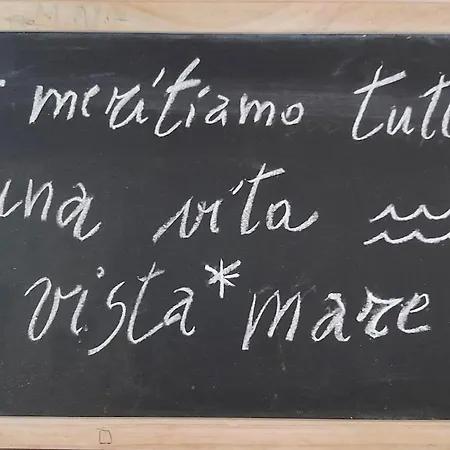 meritiamo tutt
una vita
vista*mare